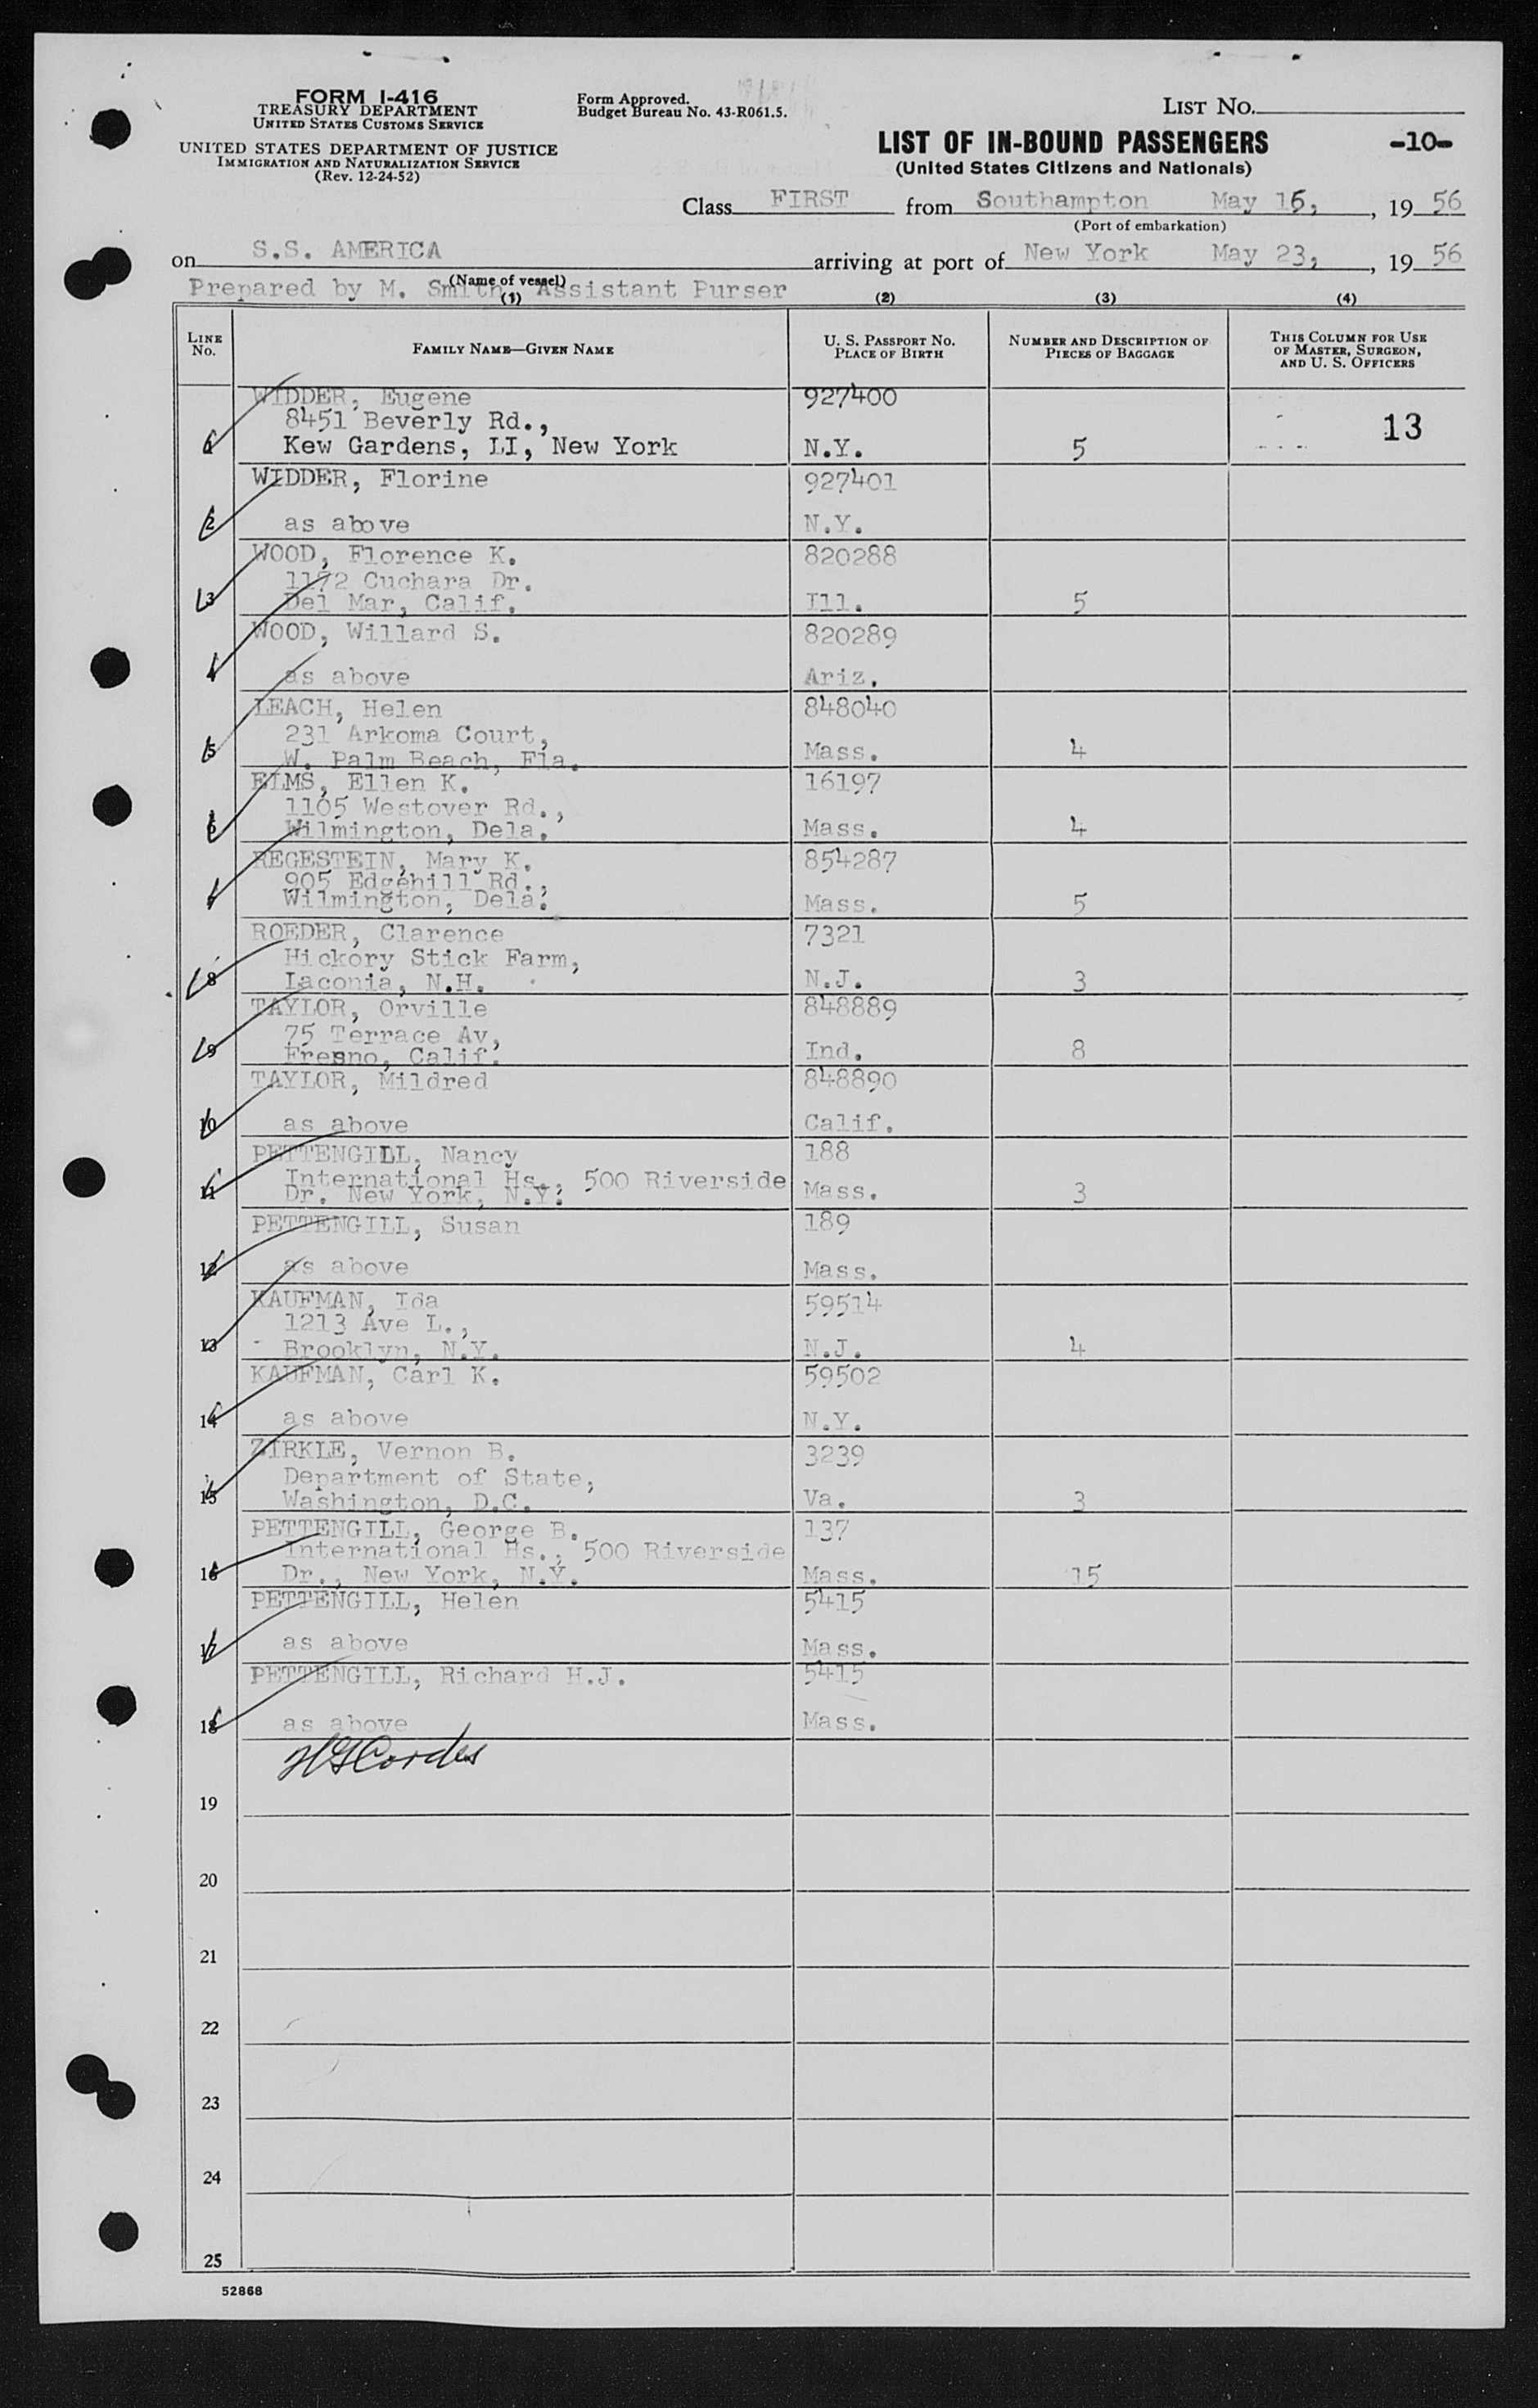 FORM I-416
TREASURY DEPARTMENT
UNITED STATES CUSTOMS SERVICE
UNITED STATES DEPARTMENT OF JUSTICE
IMMIGRATION AND NATURALIZATION SERVICE
(Rev. 12-24-52)
Form Approved.
Budget Bureau No. 43-R061.5.
LIST NO.
LIST OF IN-BOUND PASSENGERS -10-
(United States Citizens and Nationals)
Class FIRST from Southampton May 16, , 19 56
(Port of embarkation)
on S.S. AMERICA arriving at port of New York May 23, , 19 56
(Name of vessel)
Prepared by M. Smith, Assistant Purser
(1) (2) (3) (4)
LINE No. FAMILY NAME—GIVEN NAME U. S. PASSPORT NO. PLACE OF BIRTH NUMBER AND DESCRIPTION OF PIECES OF BAGGAGE THIS COLUMN FOR USE OF MASTER, SURGEON, AND U. S. OFFICERS
WIDDER, Eugene 927400
8451 Beverly Rd., 13
1 Kew Gardens, LI, New York N.Y. 5
WIDDER, Florine 927401
2 as above N.Y.
WOOD, Florence K. 820288
1172 Cuchara Dr.
3 Del Mar, Calif. Ill. 5
WOOD, Willard S. 820289
4 as above Ariz.
LEACH, Helen 848040
231 Arkoma Court,
5 W. Palm Beach, Fla. Mass. 4
ELMS, Ellen K. 16197
1105 Westover Rd.,
6 Wilmington, Dela. Mass. 4
REGESTEIN, Mary K. 854287
905 Edgehill Rd.,
7 Wilmington, Dela. Mass. 5
ROEDER, Clarence 7321
Hickory Stick Farm,
8 Laconia, N.H. N.J. 3
TAYLOR, Orville 848889
75 Terrace Av,
9 Fresno, Calif. Ind. 8
TAYLOR, Mildred 848890
10 as above Calif.
PETTENGILL, Nancy 188
International Hs., 500 Riverside
11 Dr. New York, N.Y. Mass. 3
PETTENGILL, Susan 189
12 as above Mass.
KAUFMAN, Ida 59514
1213 Ave L.,
13 Brooklyn, N.Y. N.J. 4
KAUFMAN, Carl K. 59502
14 as above N.Y.
ZIRKLE, Vernon B. 3239
Department of State,
15 Washington, D.C. Va. 3
PETTENGILL, George B. 137
International Hs., 500 Riverside
16 Dr., New York, N.Y. Mass. 15
PETTENGILL, Helen 5415
17 as above Mass.
PETTENGILL, Richard H.J. 5415
18 as above Mass.
HGCordes
19
20
21
22
23
24
25
52868